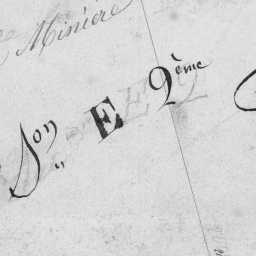 Minière
Son E 2ème